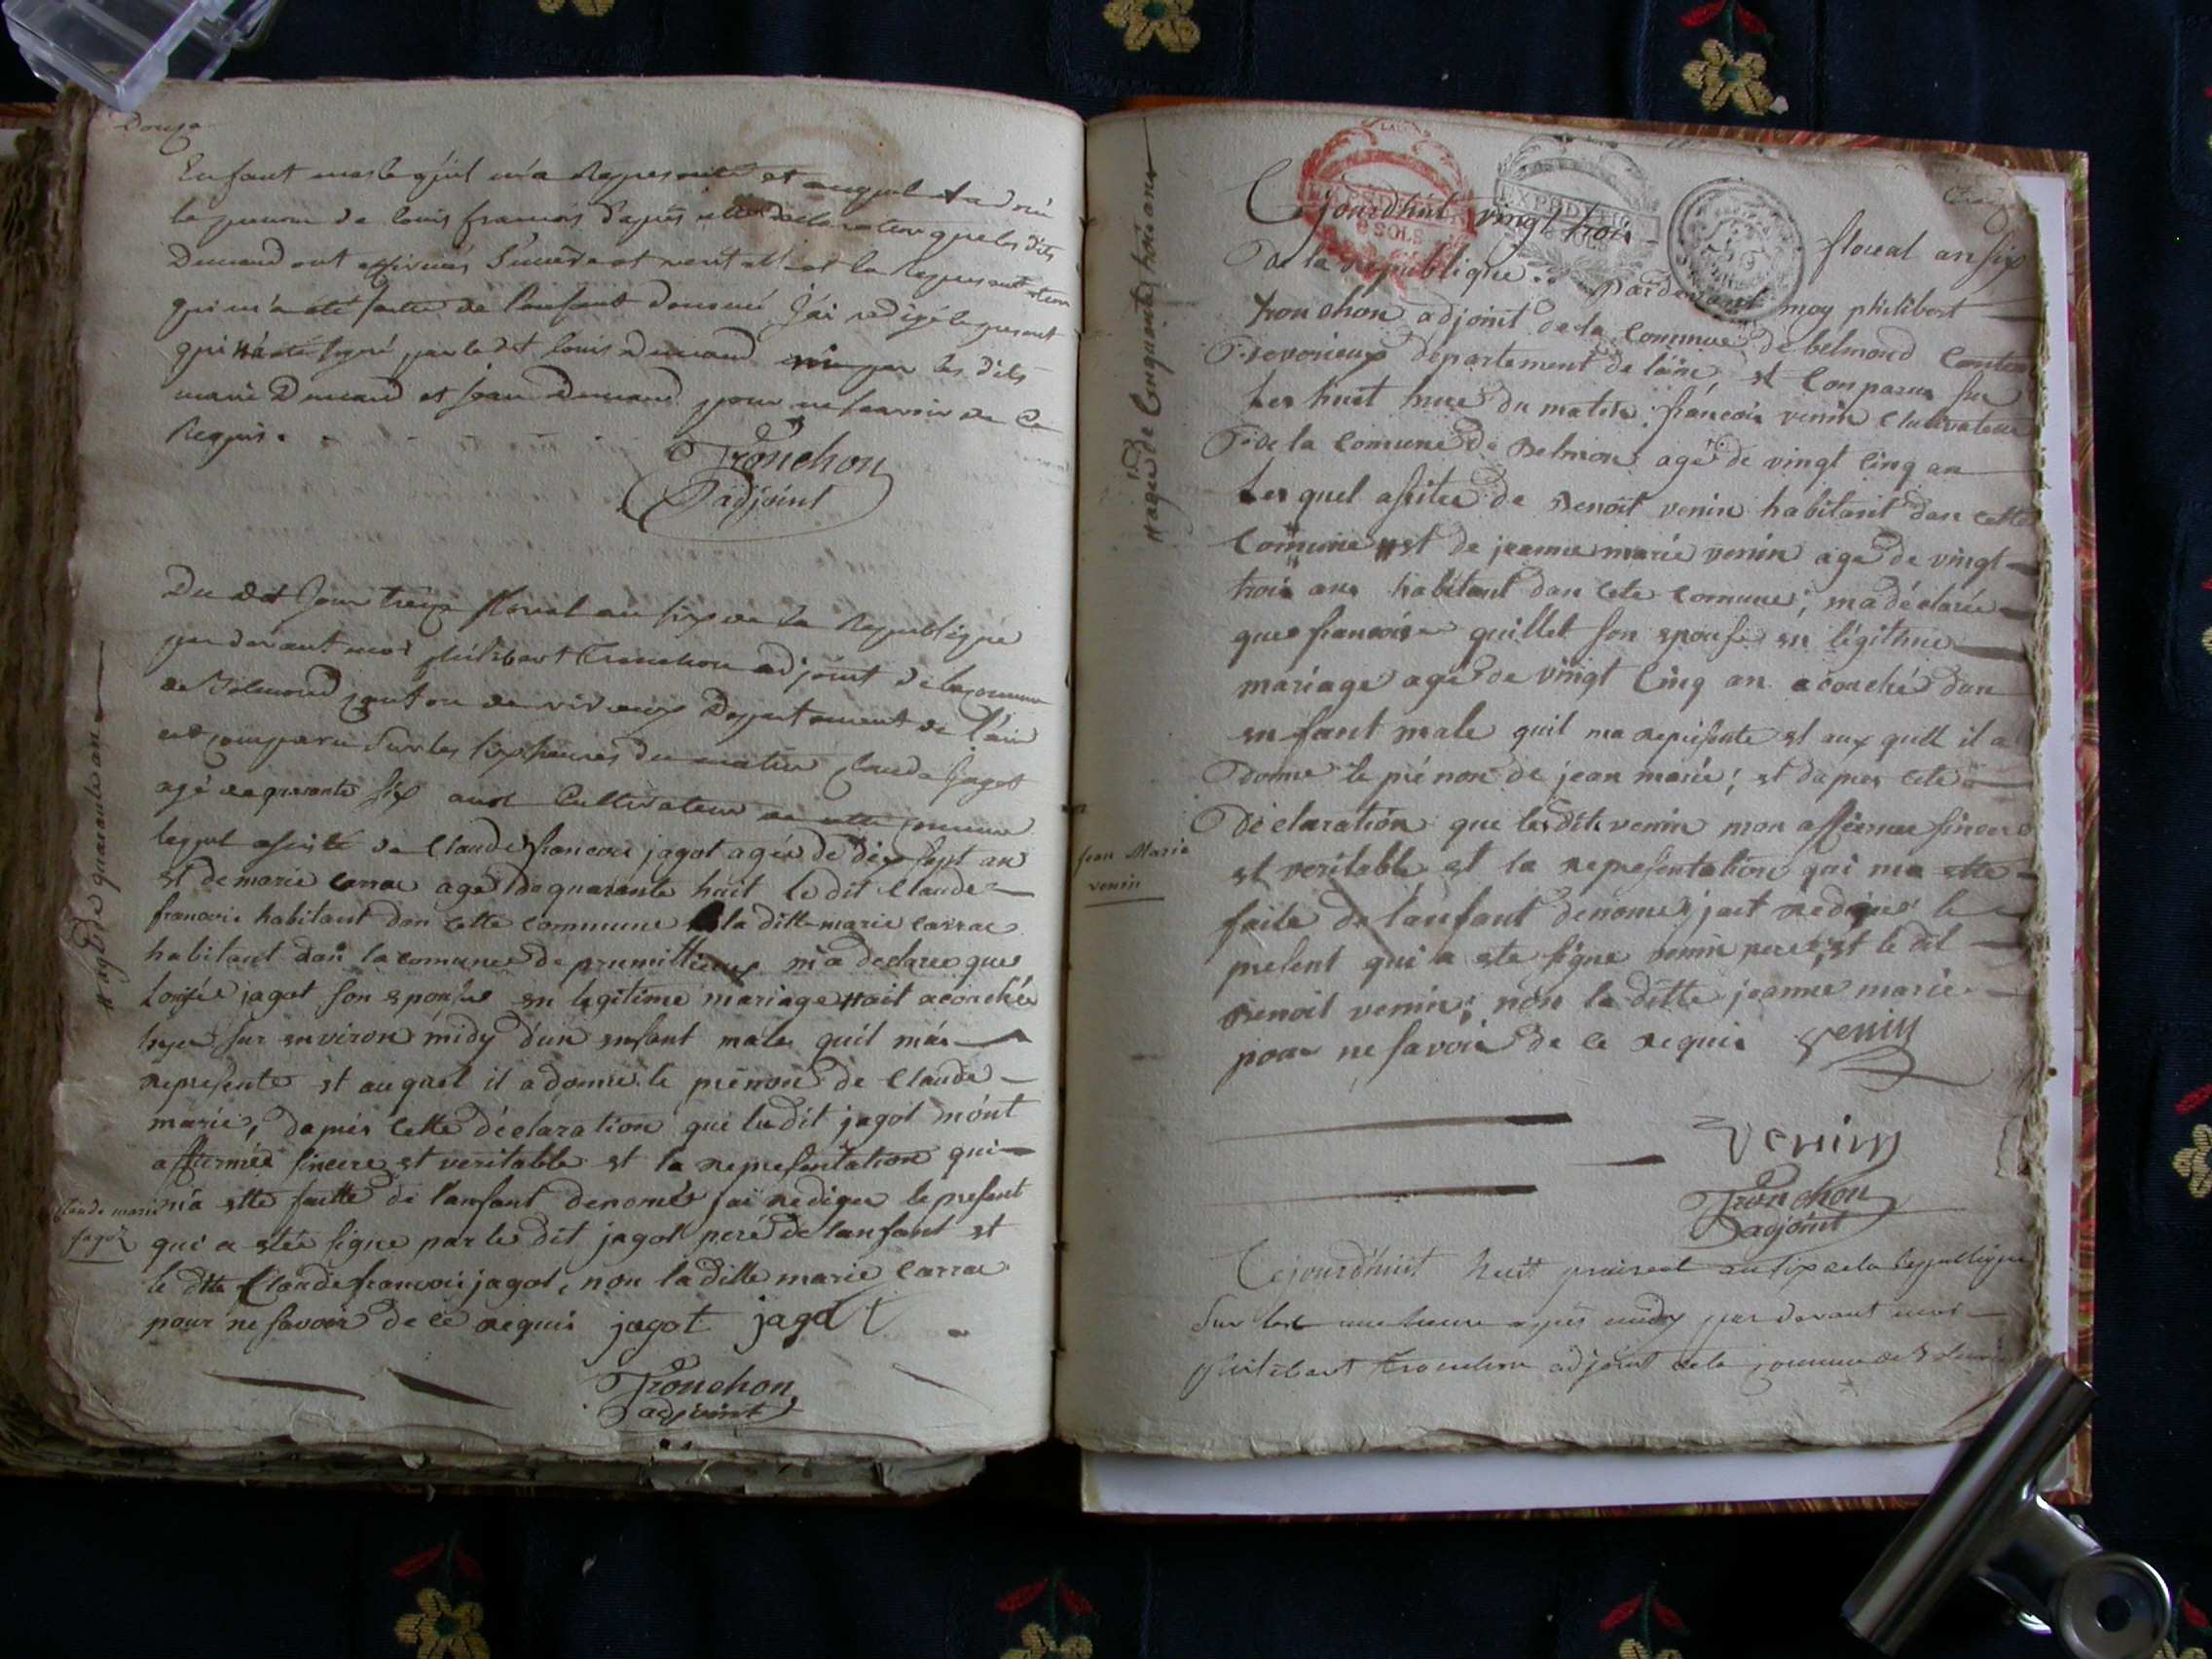 Douze
Enfant masle qu'il m'a Representé et auquel il a doné
le prenom de louis francois d'apres cette declaration que les dits
Durand ont affirmés Sincere et veritable et la Representation
qui m'a été faitte de l'enfant denomé J'ai redigé le present
qui n'a été signé par le dit louis Durand ni par les dits
marie Durand et jean Durand pour ne scavoir de ce
Requis.
Tronchon
adjoint
Du dit Jour treize floreal an six de la Republique
par devant moi philibert Tronchon adjoint de la commune
de Belmond canton de virieux Departement de l'ain
est comparu Sur les six heures du matin Claude Jagot
agé de quarante six ans Cultivateur de cette commune
lequel assisté de Claude francois jagot agée de dix sept an
et de marie carrac agé de quarante huit le dit Claude
francois habitant dan cette commune la ditte marie carrac
habitant dan la comune de prumillieux m'a declare que
Louise jagot son epouse en legitime mariage # ait acouchée
hyer sur environ midy d'un enfant male quil m'a
represente et auquel il a donne le prenon de Claude
marie, dapres cette déclaration que ledit jagot m'ont
affirmée sincere et veritable et la representation qui
m'a ette faitte de l'anfant denomé jai rediger le present
qui a etée signe par le dit jagot pere de lanfant et
le dtte Claude francois jagot, non la ditte marie Carrac
pour ne savoir de ce requis jagot jagot
Tronchon
adjoint
# agé de quarante ans
Claude marie
Jagot
Cejourdhuit vingt trois floreal an six
De la republique. pardevant moy philibert
tronchon adjoint de la commune de belmond Canton
De vorieux departement de l'ain, et Conparus sur
les huit hure du matin francois venin Cultivateur
de la Comune de Belmont agé de vingt cinq an
Lequel assiter de Benoit venin habitant dan cette
Comune # et de jeanne marie venin age de vingt
trois ans habitant dan cete comune; ma déclarée
que francoise guillet son epouse en légithme
mariage agé de vingt Cinq an acouché dun
enfant male quil ma represente et aux quell il a
donne le prénon de jean marie; et dapres cete
Déclaration que les dits venin mon affirmee sincere
et veritable et la representation qui ma ette
faite de lanfant denome jait rediger le
present qui a ete signe venin pere; et le dit
Benoit venin; non la ditte jeanne marie
pour ne savoir de ce requis Venin
Venin
Tronchon
adjoint
# agé de Cinquante trois ans
Jean Marie
venin
EXPEDITION
6 SOLS
Cejourd'huit huit praireal an six de la Republique
Sur les une heure après midy par devant moi
Philibert Tronchon adjoint de la commune de Belmond